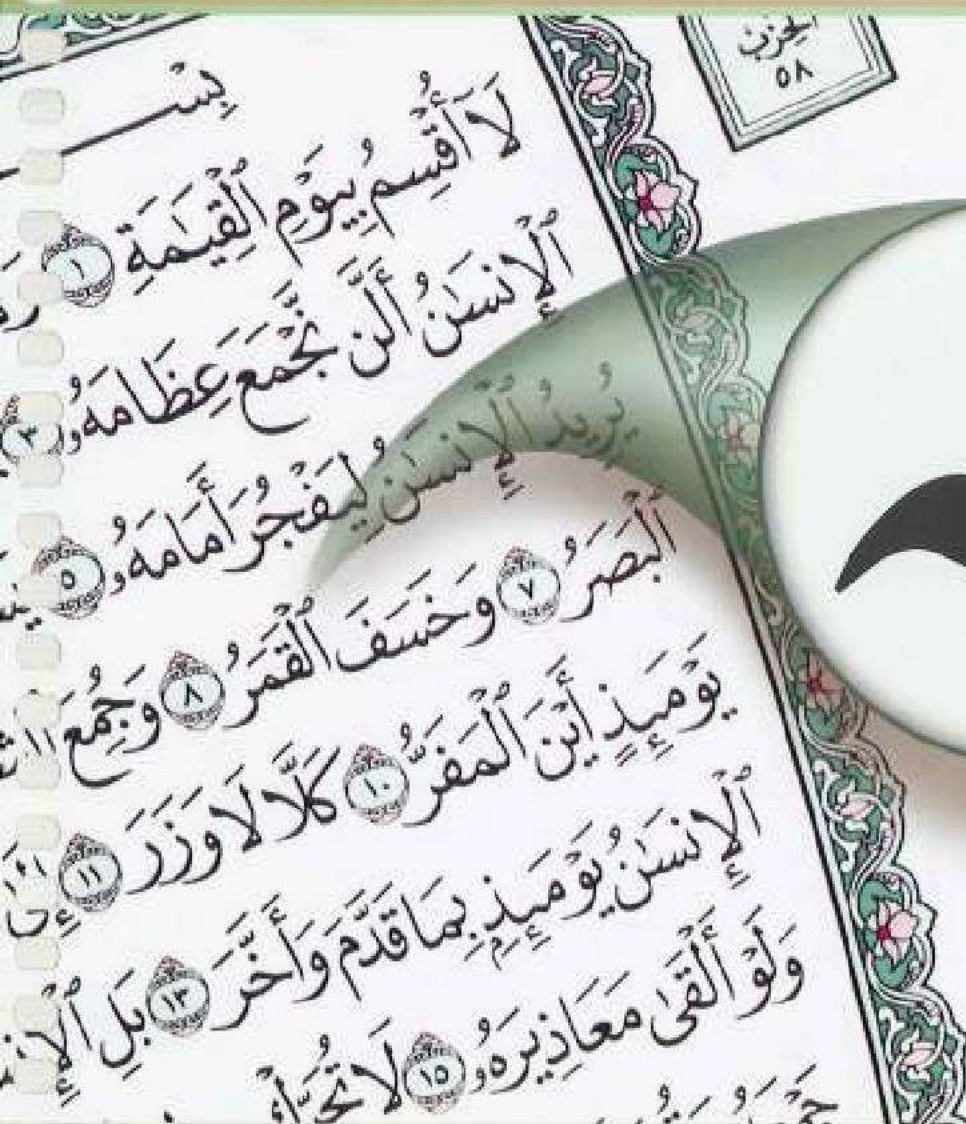 الحزب
٥٨
بِسْـ
لَا أُقْسِمُ بِيَوْمِ ٱلْقِيَٰمَةِ ١
ٱلْإِنسَٰنُ أَلَّن نَّجْمَعَ عِظَامَهُۥ ٣
يُرِيدُ ٱلْإِنسَٰنُ لِيَفْجُرَ أَمَامَهُۥ ٥
ٱلْبَصَرُ ٧ وَخَسَفَ ٱلْقَمَرُ ٨ وَجُمِعَ
يَوْمَئِذٍ أَيْنَ ٱلْمَفَرُّ ١٠ كَلَّا لَا وَزَرَ ١١
ٱلْإِنسَٰنُ يَوْمَئِذٍۭ بِمَا قَدَّمَ وَأَخَّرَ ١٣ بَلِ
وَلَوْ أَلْقَىٰ مَعَاذِيرَهُۥ ١٥ لَا